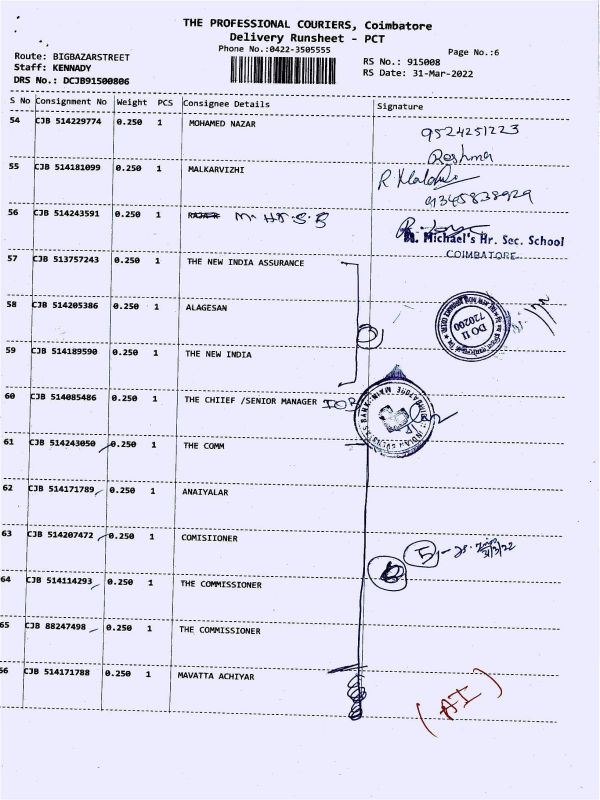 THE PROFESSIONAL COURIERS, Coimbatore
Delivery Runsheet - PCT
Phone No.:0422-3505555
Page No.:6
Route: BIGBAZARSTREET
Staff: KENNADY
DRS No.: DCJB91500806
RS No.: 915008
RS Date: 31-Mar-2022
S No Consignment No Weight PCS Consignee Details Signature
54 CJB 514229774 0.250 1 MOHAMED NAZAR 9524251223
Reshma
55 CJB 514181099 0.250 1 MALKARVIZHI
9345838929
56 CJB 514243591 0.250 1
Michael's Hr. Sec. School
COIMBATORE
57 CJB 513757243 0.250 1 THE NEW INDIA ASSURANCE
58 CJB 514205386 0.250 1 ALAGESAN
DO II
720200
59 CJB 514189590 0.250 1 THE NEW INDIA
60 CJB 514085486 0.250 1 THE CHIIEF /SENIOR MANAGER
61 CJB 514243050 0.250 1 THE COMM
62 CJB 514171789 0.250 1 ANAIYALAR
63 CJB 514207472 0.250 1 COMISIIONER
5
31/3/22
64 CJB 514114293 0.250 1 THE COMMISSIONER
65 CJB 88247498 0.250 1 THE COMMISSIONER
66 CJB 514171788 0.250 1 MAVATTA ACHIYAR
(AI)